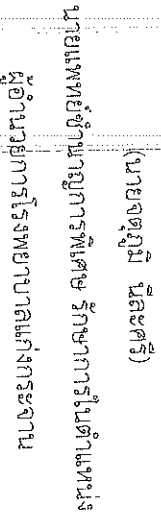 (นายจตุภูมิ นีละศรี)
นายแพทย์ชำนาญการพิเศษ รักษาการในตำแหน่ง
ผู้อำนวยการโรงพยาบาลแก่งกระจาน